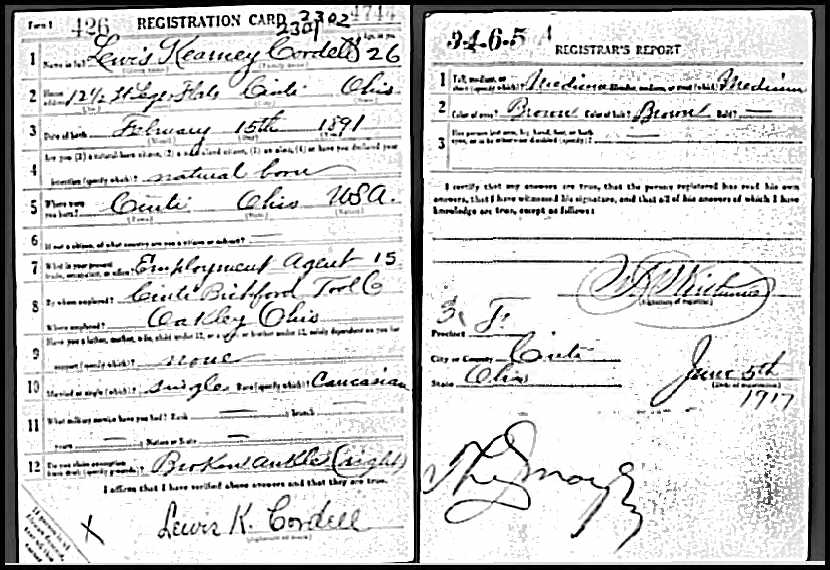 Form 1 426 REGISTRATION CARD 2302 4744
2301
1 Name in full Lewis Kearney Cordell 26
2 Home address Flats Cinti Ohio
3 Date of birth February 15th 1891
4 Are you (1) a natural-born citizen, (2) a naturalized citizen, (3) an alien, (4) or have you declared your
intention (specify which)? natural born
5 Where were you born? Cinti Ohio USA.
6 If not a citizen, of what country are you a citizen or subject? —
7 What is your present trade, occupation, or office? Employment Agent 15
8 By whom employed? Cinti Bickford Tool Co
Where employed? Oakley Ohio
9 Have you a father, mother, wife, child under 12, or a sister or brother under 12, solely dependent on you for
support (specify which)? none
10 Married or single (which)? single Race (specify which)? Caucasian
11 What military service have you had? Rank — ; branch —
years — ; Nation or State —
12 Do you claim exemption from draft (specify grounds)? Broken ankle (right)
I affirm that I have verified above answers and that they are true.
X Lewis K. Cordell
(Signature or mark)
34-6-5 A
REGISTRAR'S REPORT
1 Tall, medium, or short (specify which)? Medium Slender, medium, or stout (which)? Medium
2 Color of eyes? Brown Color of hair? Brown Bald? —
3 Has person lost arm, leg, hand, foot, or both eyes, or is he otherwise disabled (specify)? —
I certify that my answers are true, that the person registered has read his own
answers, that I have witnessed his signature, and that all of his answers of which I have
knowledge are true, except as follows:
(Signature of registrar)
Precinct
City or County Cinti
State Ohio
June 5th
(Date of registration)
1917